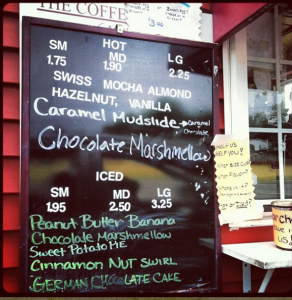 THE COFFE
HOT
SM MD LG
1.75 1.90 2.25
SWISS MOCHA ALMOND
HAZELNUT, VANILLA
Caramel Mudslide → Caramel
Chocolate
Chocolate Marshmellow
ICED
SM MD LG
1.95 2.50 3.25
Peanut Butter Banana
Chocolate Marshmellow
Sweet Potato Pie
Cinnamon Nut Swirl
German Chocolate Cake